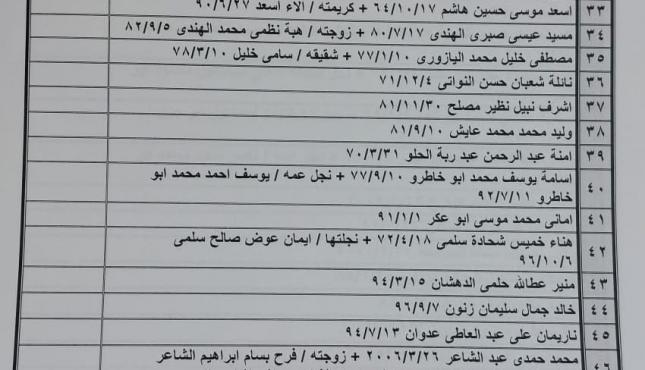 ٣٣ اسعد موسى حسين هاشم ٦٤/١٠/١٧ + كريمته / الاء اسعد ٩٠/٦/٢٧
٣٤ مسيد عيسى صبرى الهندى ٨٠/٧/١٧ + زوجته / هبة نظمى محمد الهندى ٨٢/٩/٥
٣٥ مصطفى خليل محمد اليازورى ٧٧/١/١٠ + شقيقه / سامى خليل ٧٨/٣/١٠
٣٦ نائلة شعبان حسن النواتى ٧١/١٢/٤
٣٧ اشرف نبيل نظير مصلح ٨١/١١/٣٠
٣٨ وليد محمد محمد عايش ٨١/٩/١٠
٣٩ امنة عبد الرحمن عبد ربة الحلو ٧٠/٣/٣١
٤٠ اسامة يوسف محمد ابو خاطرو ٧٧/٩/١٠ + نجل عمه / يوسف احمد محمد ابو
خاطرو ٩٢/٧/١١
٤١ امانى محمد موسى ابو عكر ٩١/١/١
٤٢ هناء خميس شحادة سلمى ٧٢/٤/١٨ + نجلتها / ايمان عوض صالح سلمى
٩٦/١٠/٦
٤٣ منير عطالله حلمى الدهشان ٩٤/٣/١٥
٤٤ خالد جمال سليمان زنون ٩٦/٩/٧
٤٥ ناريمان على عبد العاطى عدوان ٩٤/٧/١٣
٤٦ محمد حمدى عبد الشاعر ٢٠٠٦/٣/٢٦ + زوجته / فرح بسام ابراهيم الشاعر